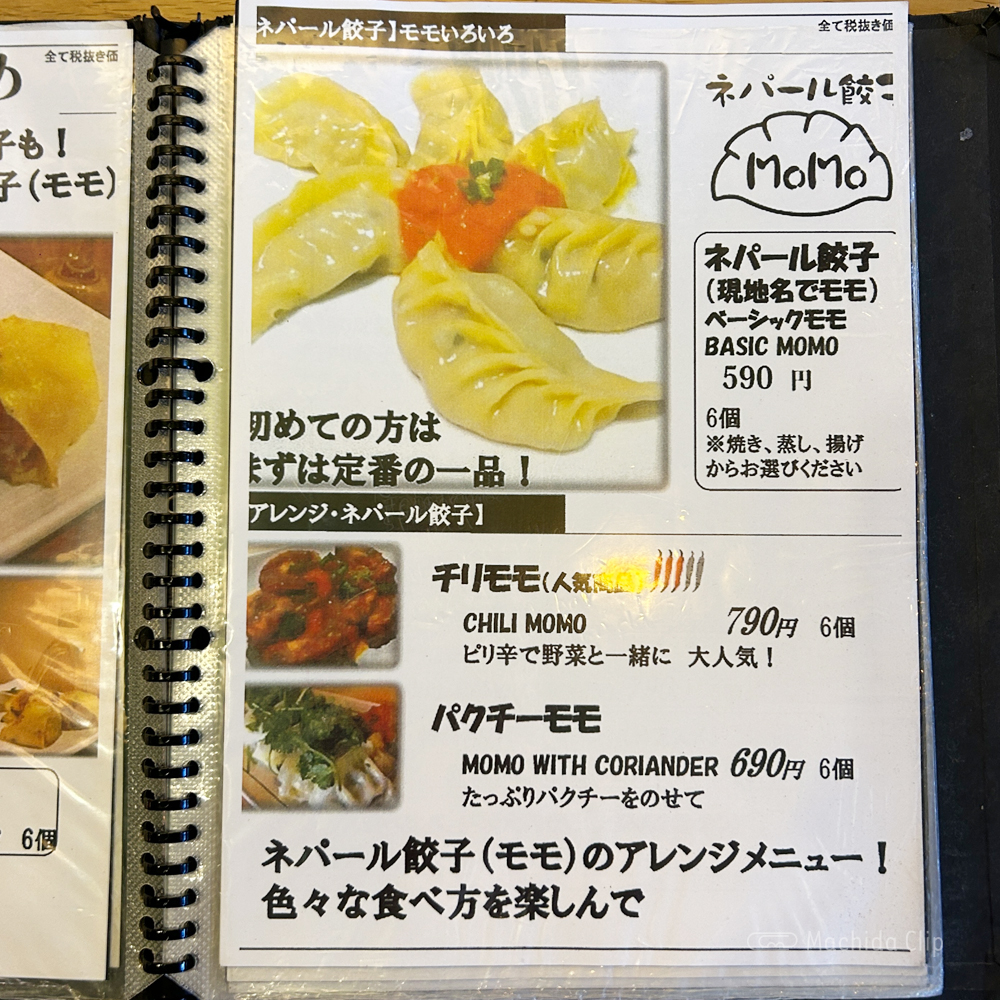 全て税抜き価
め
子も！
子（モモ）
6個
ネパール餃子】モモいろいろ
全て税抜き価
ネパール餃子
MoMo
ネパール餃子
（現地名でモモ）
ベーシックモモ
BASIC MOMO
590 円
6個
※焼き、蒸し、揚げ
からお選びください
初めての方は
まずは定番の一品！
アレンジ・ネパール餃子】
チリモモ（人気
CHILI MOMO 790円 6個
ピリ辛で野菜と一緒に 大人気！
パクチーモモ
MOMO WITH CORIANDER 690円 6個
たっぷりパクチーをのせて
ネパール餃子（モモ）のアレンジメニュー！
色々な食べ方を楽しんで
Machida Clip